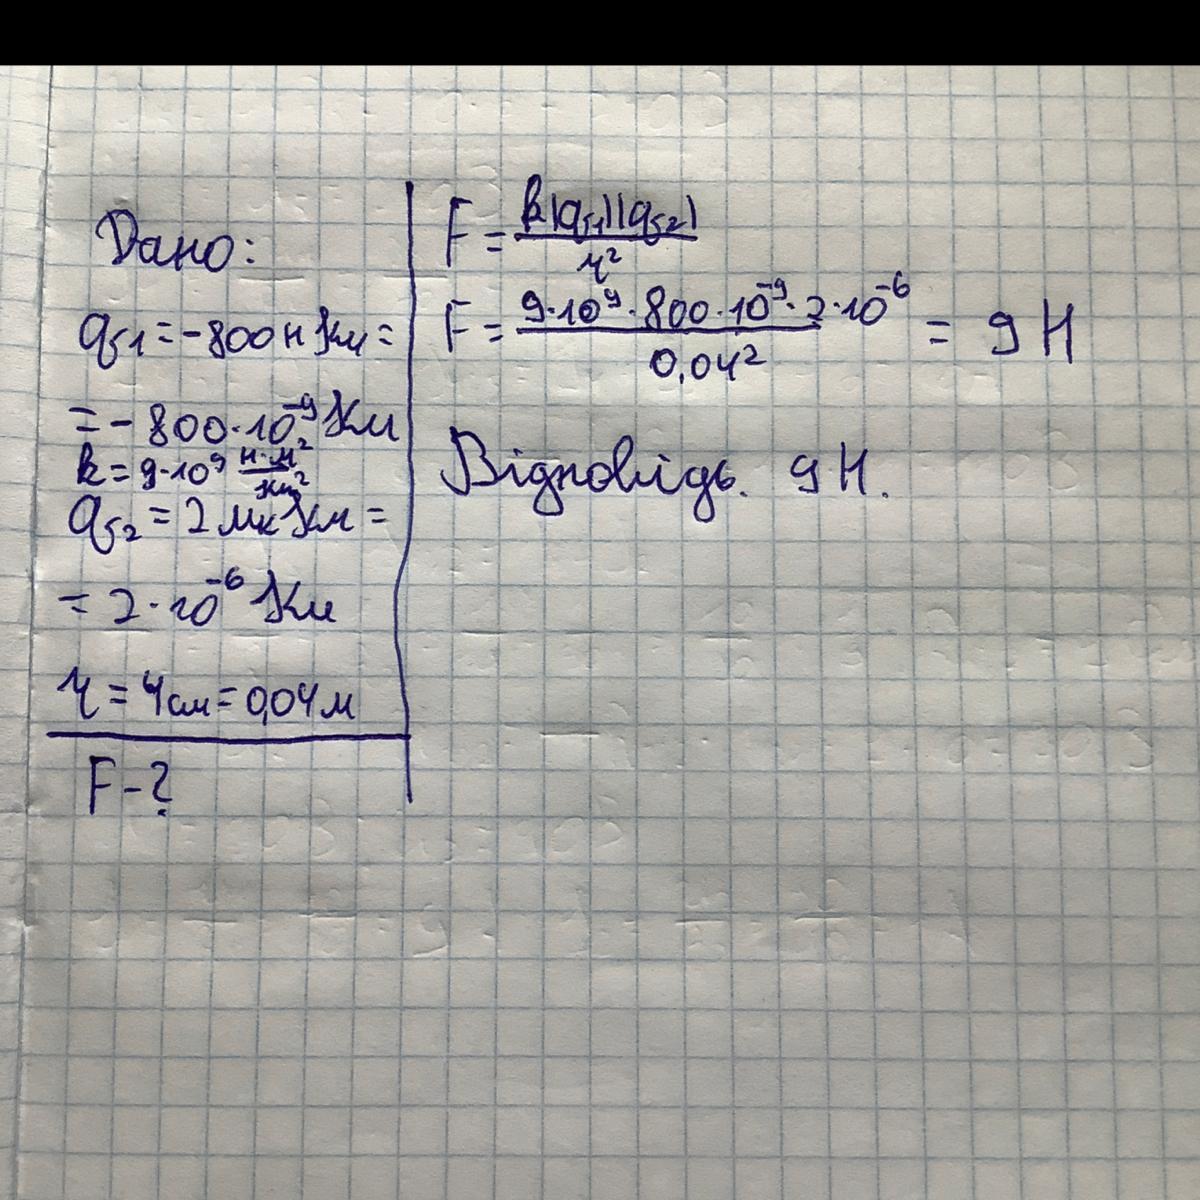 Дано:
q₁ = -800 нКл =
= -800·10⁻⁹ Кл
k = 9·10⁹ Н·м²/Кл²
q₂ = 2 мкКл =
= 2·10⁻⁶ Кл
r = 4 см = 0,04 м
F - ?
F = k|q₁||q₂| / r²
F = 9·10⁹·800·10⁻⁹·2·10⁻⁶ / 0,04² = 9 Н
Відповідь. 9 Н.